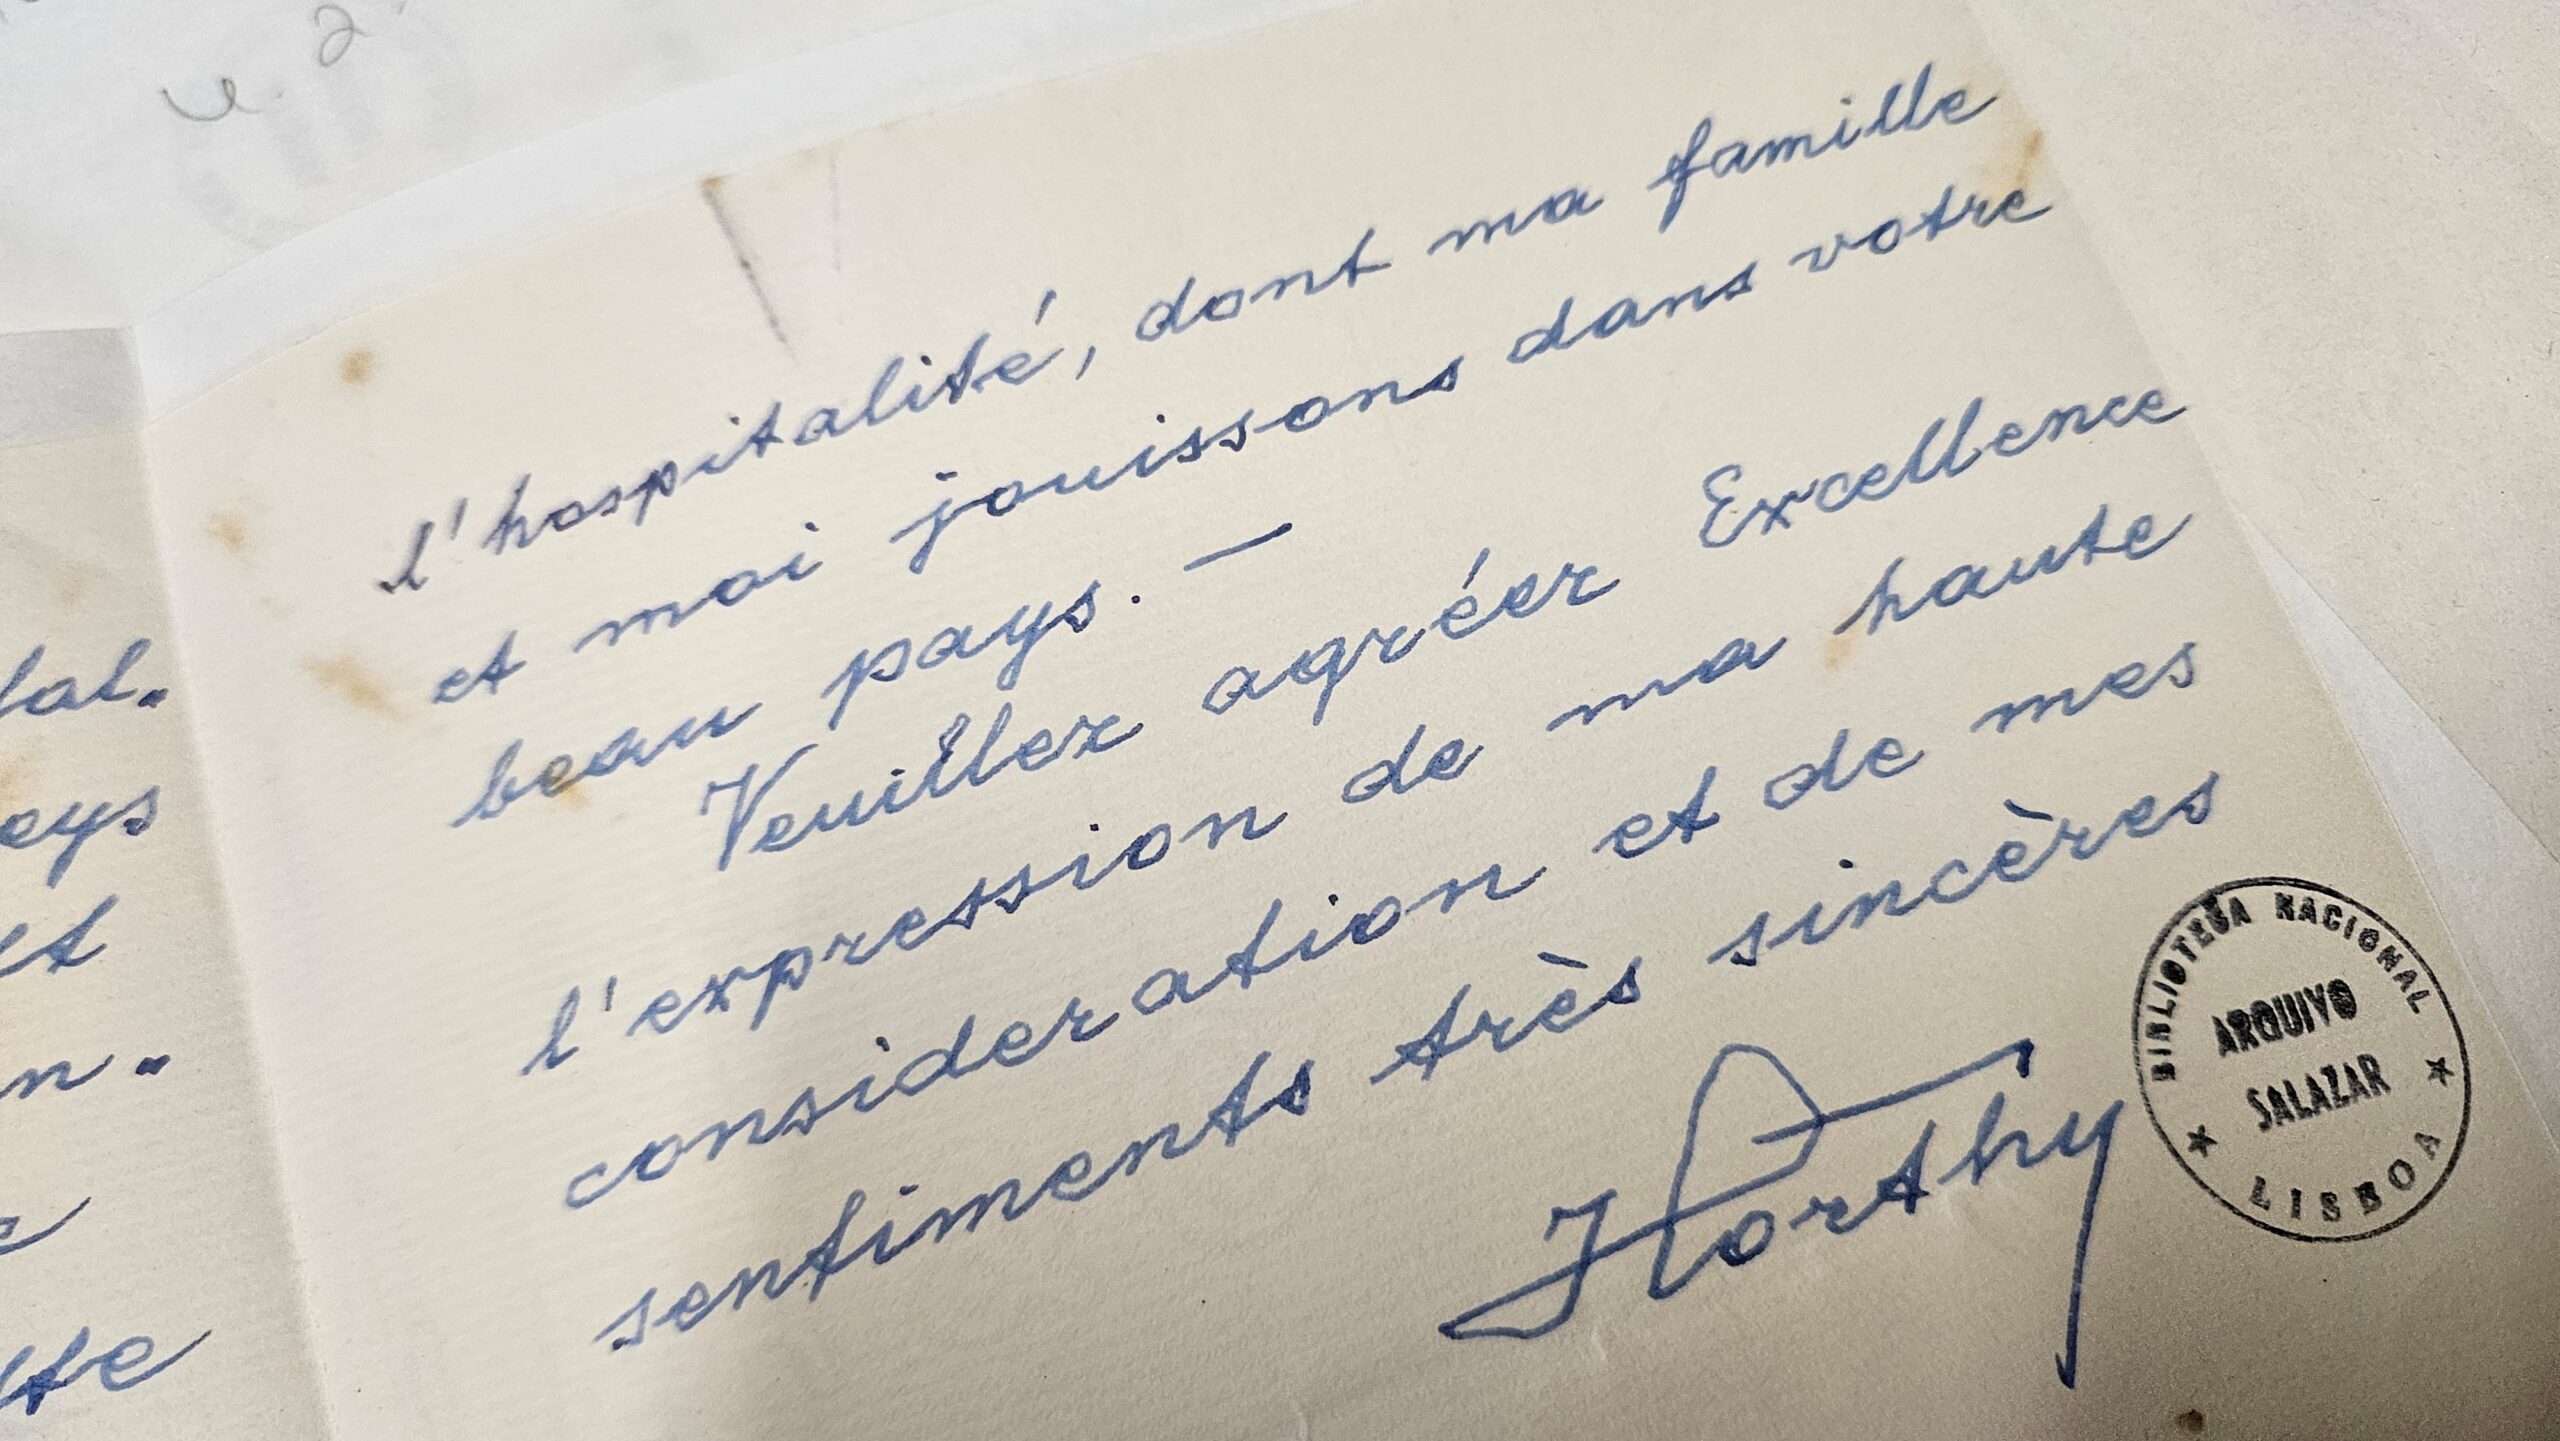 l'hospitalité, dont ma famille
et moi jouissons dans votre
beau pays. —
Veuillez agréer Excellence
l'expression de ma haute
consideration et de mes
sentiments très sincères
Horthy
BIBLIOTECA NACIONAL
ARQUIVO
SALAZAR
LISBOA